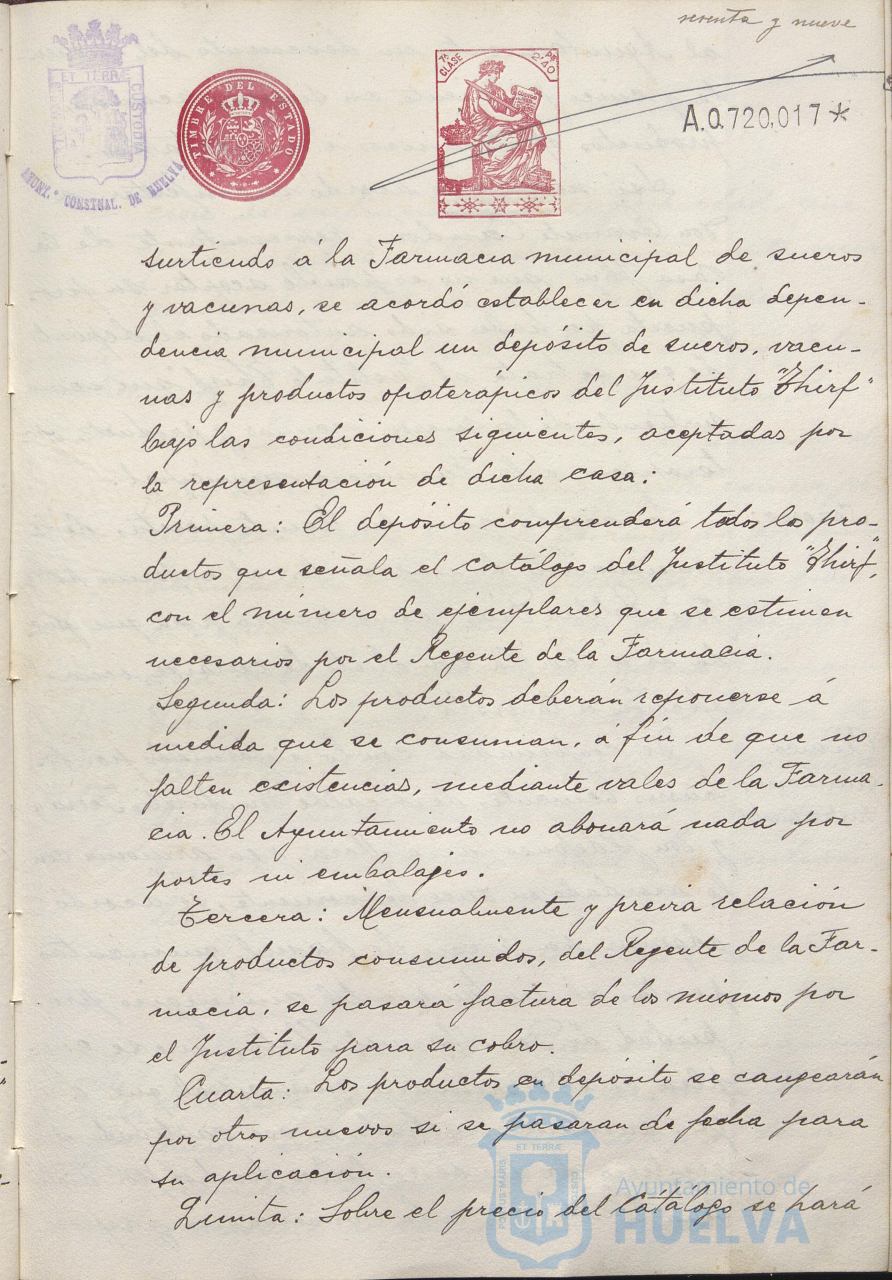 y nueve
ET TERRÆ
CUSTODIA
AYUNT.º CONSTNAL. DE HUELVA
TIMBRE DEL ESTADO
7ª CLASE
PS 2'40
A.0.720,017*
surtiendo á la Farmacia municipal de sueros
y vacunas, se acordó establecer en dicha depen-
dencia municipal un depósito de sueros, vacu-
nas y productos opoterápicos del Instituto "Thirf"
bajo las condiciones siguientes, aceptadas por
la representación de dicha casa:
Primera: El depósito comprenderá todos los pro-
ductos que señala el catálogo del Instituto "Thirf",
con el número de ejemplares que se estimen
necesarios por el Regente de la Farmacia.
Segunda: Los productos deberán reponerse á
medida que se consuman, á fin de que no
falten existencias, mediante vales de la Farma-
cia. El Ayuntamiento no abonará nada por
portes ni embalajes.
Tercera: Mensualmente y previa relación
de productos consumidos, del Regente de la Far-
macia, se pasará factura de los mismos por
el Instituto para su cobro.
Cuarta: Los productos en depósito se cangearán
por otros nuevos si se pasaran de fecha para
su aplicación.
Quinta: Sobre el precio del Catálogo se hará
ET TERRÆ
PORTUS MARIS
CUSTODIA
Ayuntamiento de
HUELVA